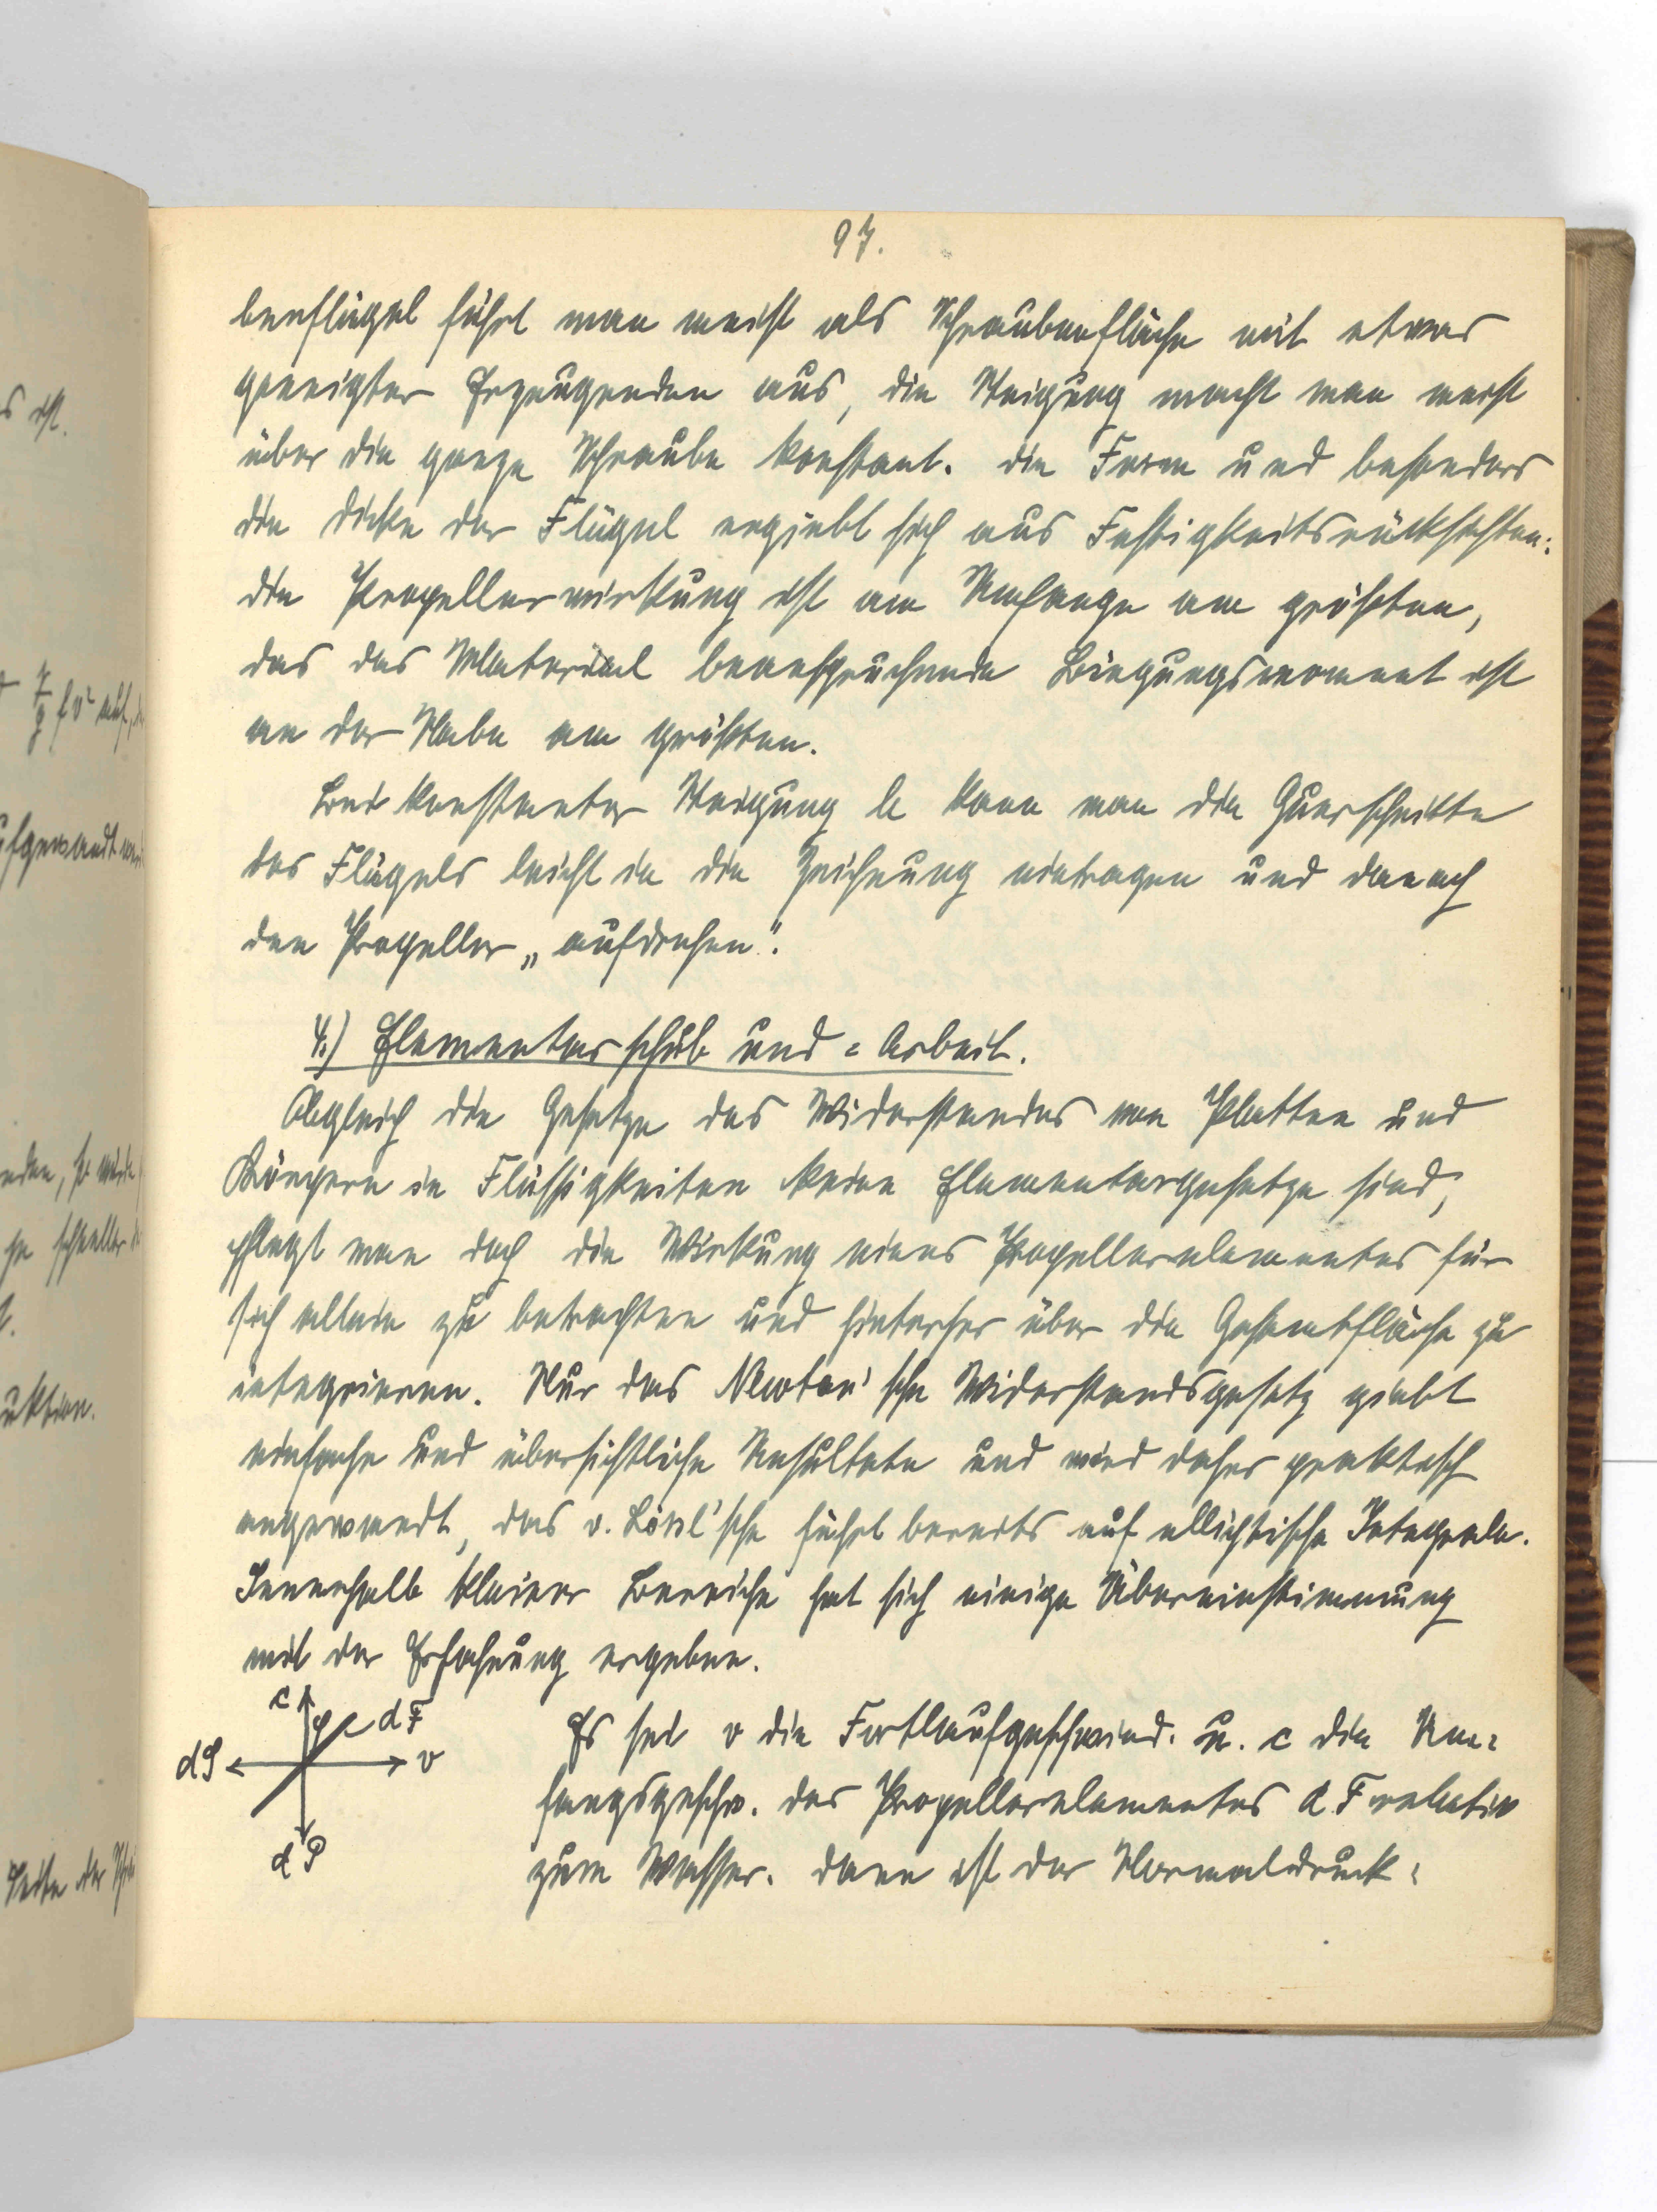 97.
benflügel führt man meist als Schraubenfläche mit etwas
geneigter Erzeugenden aus, die Steigung macht man meist
über die ganze Schraube konstant. Die Form und besonders
die Dicke der Flügel ergiebt sich aus Festigkeitsrücksichten:
die Propellerwirkung ist am Umfange am größten,
das das Material beanspruchende Biegungsmoment ist
an der Nabe am größten.
Bei konstanter Steigung h kann man die Querschnitte
des Flügels leicht in die Zeichnung eintragen und danach
den Propeller „aufdrehen".
4.) Elementarschub und = Arbeit.
Obgleich die Gesetze des Widerstandes von Platten und
Körpern in Flüssigkeiten keine Elementargesetze sind,
pflegt man doch die Wirkung eines Propellerelementes für
sich allein zu betrachten und hinterher über die Gesamtfläche zu
integrieren. Nur das Newton'sche Widerstandsgesetz giebt
einfache und übersichtliche Resultate und wird daher praktisch
angewandt, das v. Lössl'sche führt bereits auf elliptische Integrale.
Innerhalb kleiner Bereiche hat sich einige Übereinstimmung
mit der Erfahrung ergeben.
c
φ
dF
dS
v
dP
Es sei v die Fortlaufgeschwind. u. c die Um=
fangsgeschw. des Propellerelementes dF relativ
zum Wasser. Dann ist der Normaldruck:
s ist.
fv² auf, d
ufgewandt
nden, so würde
he schneller
t.
uktion.
Seite der